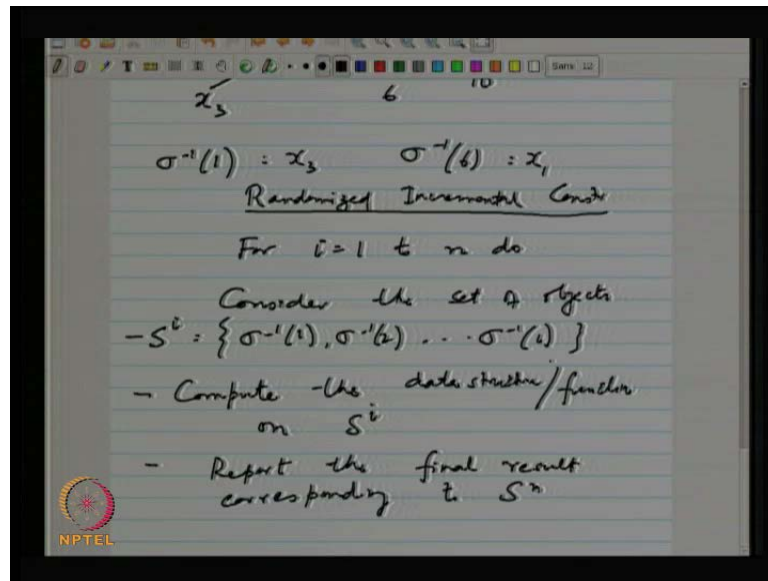 Sans 12
x₃ 6 10
σ⁻¹(1) : x₃ σ⁻¹(6) : x₁
Randomized Incremental Constr
For i = 1 t n do
Consider the set of objects
- Sⁱ = { σ⁻¹(1), σ⁻¹(2) . . . σ⁻¹(i) }
- Compute the data structure/function
on Sⁱ
- Report the final result
corresponding t Sⁿ
NPTEL